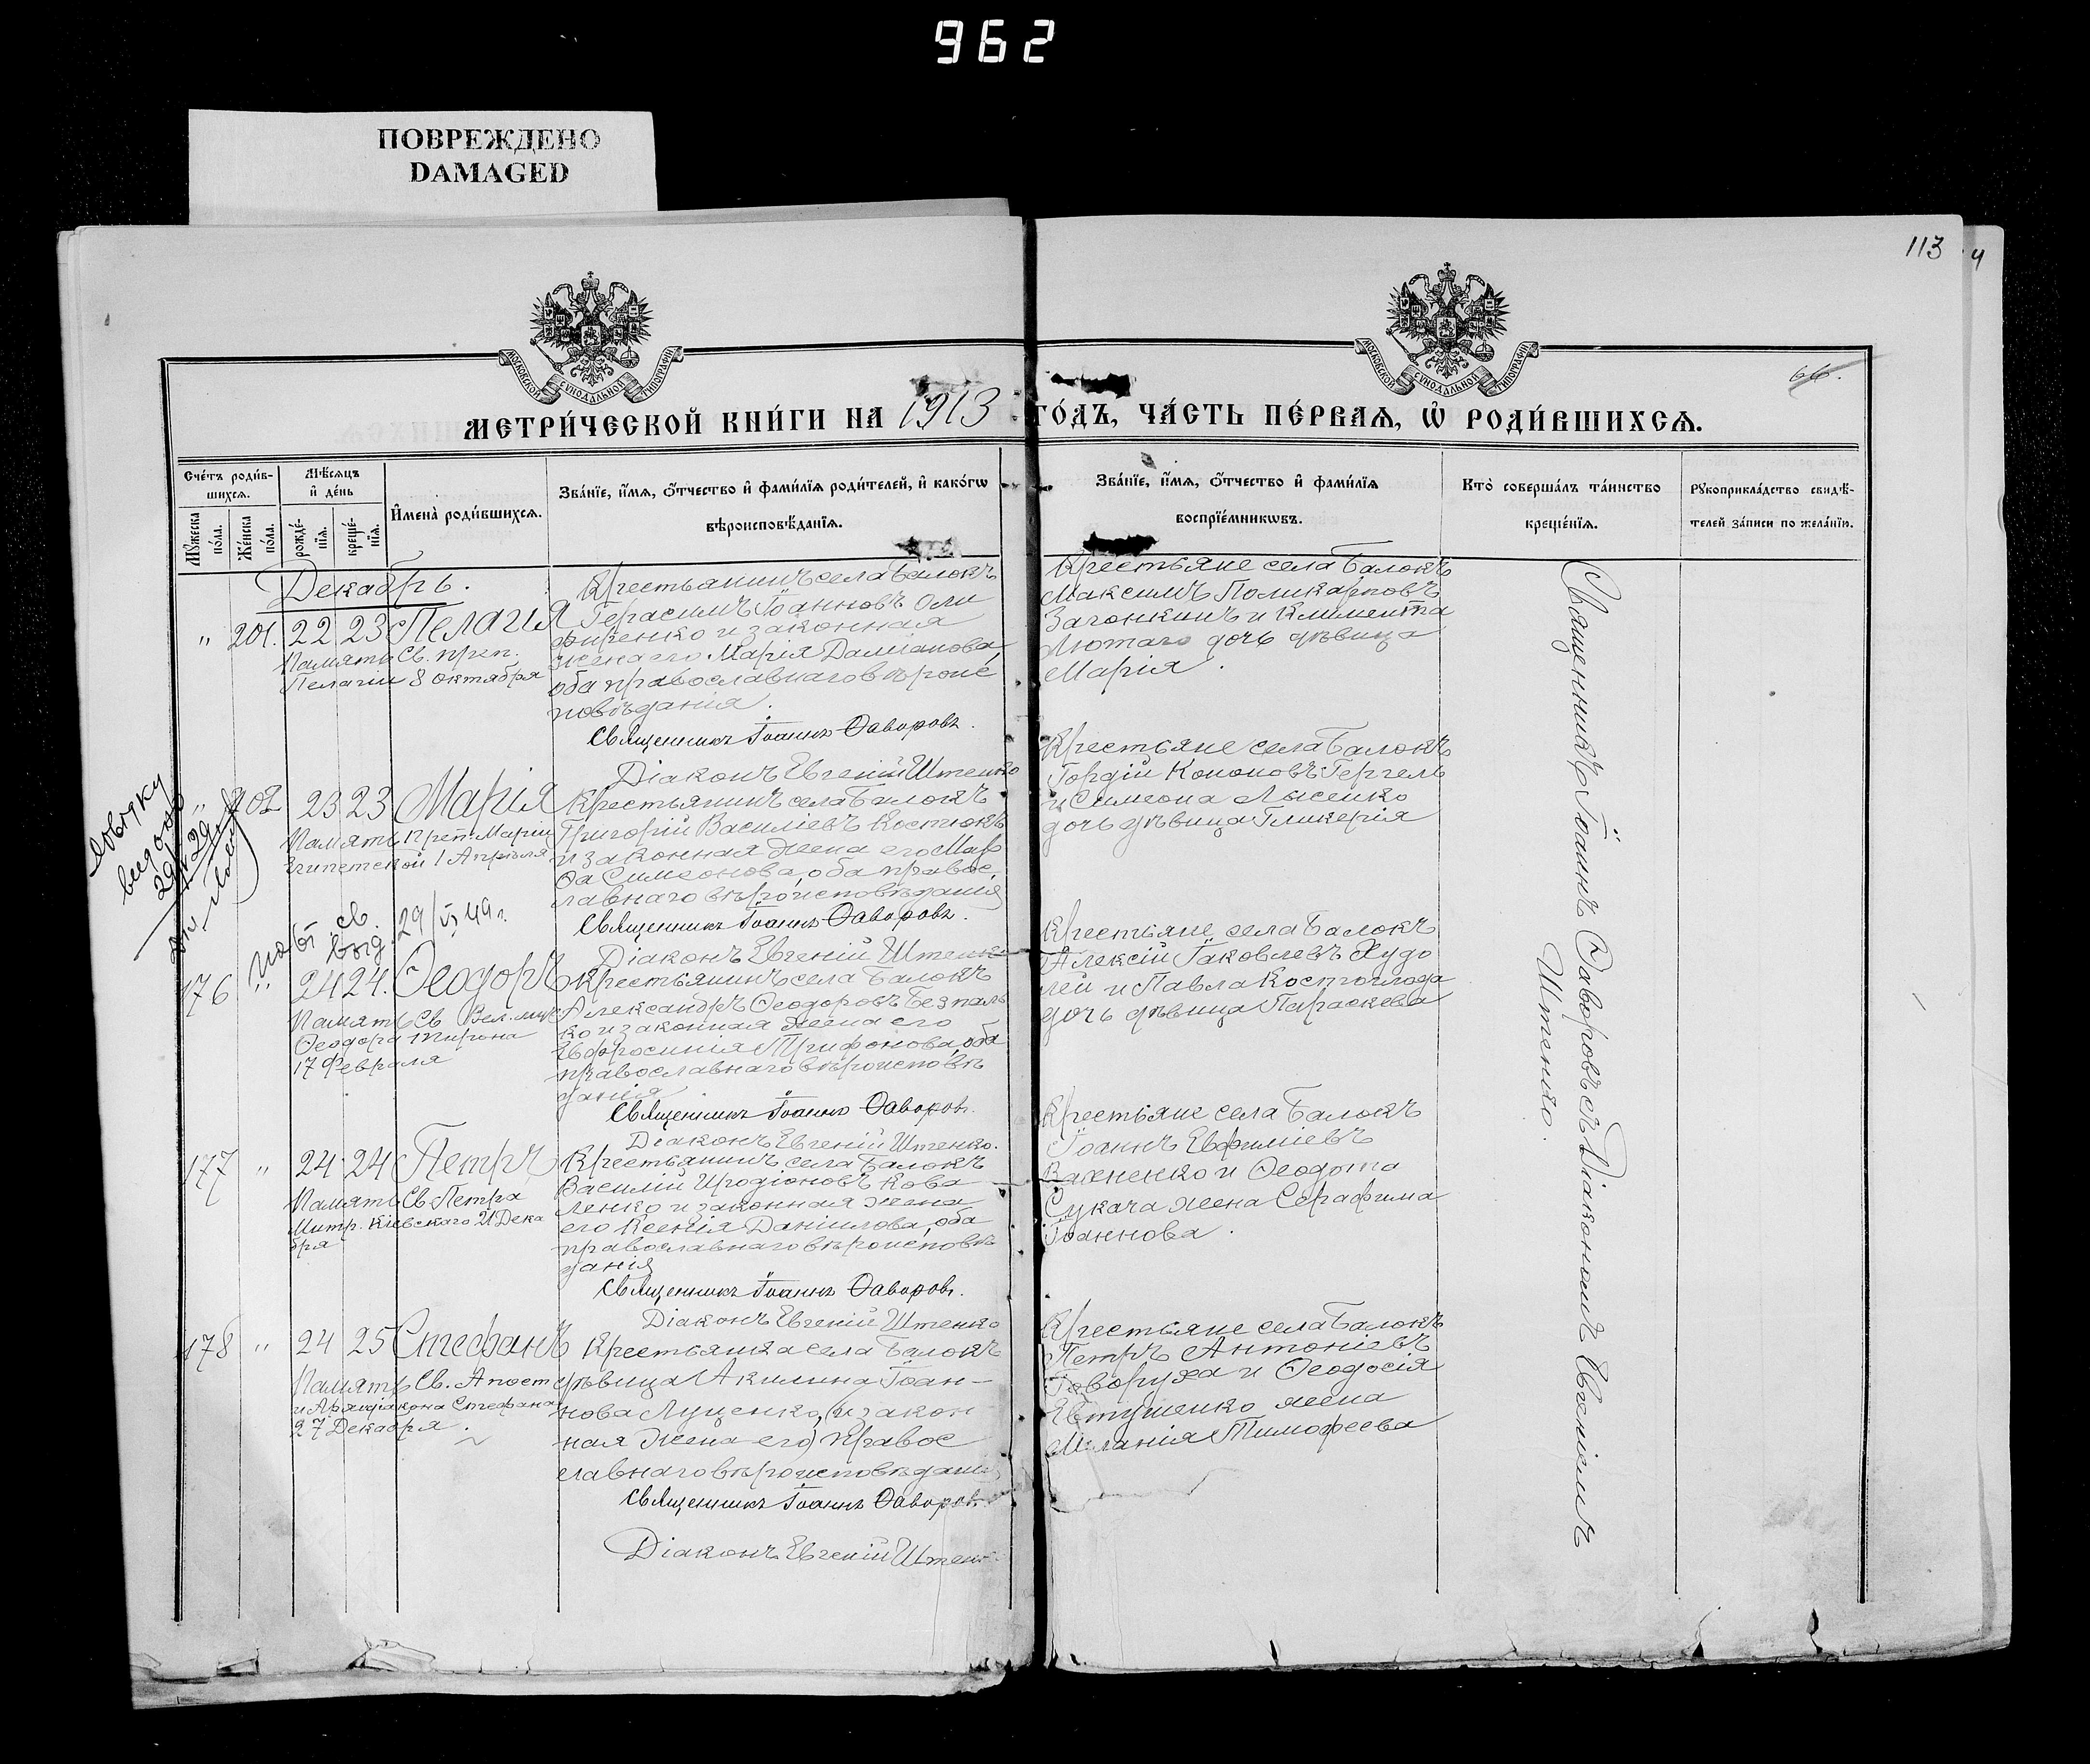 962
ПОВРЕЖДЕНО
DAMAGED
113
4
66.
МОСКОВСКОЙ СѴНОДАЛЬНОЙ ТИПОГРАФІИ
МОСКОВСКОЙ СѴНОДАЛЬНОЙ ТИПОГРАФІИ
МЕТРИ́ЧЕСКОЙ КНИ́ГИ НА 1913 ГО́ДЪ, ЧА́СТЬ ПЕ́РВАѦ, Ѽ РОДИ́ВШИХСѦ.
Сче́тъ роди́в-
шихсѧ.
Мꙋ́жеска
по́ла.
Же́нска
по́ла.
Мѣ́сѧцъ
и҆ де́нь
рожде́-
нїѧ.
креще́-
нїѧ.
И҆мена̀ роди́вшихсѧ.
Зва́нїе, и҆́мѧ, ѻ҆́тчество и҆ фами́лїѧ роди́телей, и҆ како́гѡ
вѣроисповѣ́данїѧ.
Зва́нїе, и҆́мѧ, ѻ҆́тчество и҆ фами́лїѧ
воспрїе́мникѡвъ.
Кто̀ соверша́лъ та́инство
креще́нїѧ.
Рꙋкоприкла́дство свидѣ́-
телей за́писи по жела́нїю.
Декабрь.
" 201. 22 23 Пелагія
Память св. преп.
Пелагіи 8 октября
Крестьянинъ села Балокъ
Герасимъ Іоанновъ Оли
фиренко и законная
жена его Марія Даміанова,
оба православнаго вѣроис
повѣданія.
Священникъ Іоаннъ Ѳаворовъ.
Діаконъ Евгеній Штенко
Крестьяне села Балокъ
Максимъ Поликарповъ
Загонкинъ и Климента
Лютаго дочь дѣвица
Марія.
" 202 23 23 Марія
Память Преп. Маріи
Египетской 1 Апрѣля
Крестьянинъ села Балокъ
Григорій Василіевъ Костюкъ
и законная жена его Мар
ѳа Симеонова, оба правос
лавнаго вѣроисповѣданія
Священникъ Іоаннъ Ѳаворовъ.
Діаконъ Евгеній Штенко
Крестьяне села Балокъ
Гордій Кононовъ Гергель
и Симеона Лысенко
дочь дѣвица Гликерія
св.
29/V 49 г.
176 " 24 24. Ѳеодоръ
Память Св. Вел. муч
Ѳеодора Тирона
17 Февраля
Крестьянинъ села Балокъ
Александръ Ѳеодоровъ Безпаль
ко и законная жена его
Евфросинія Трифонова, оба
православнаго вѣроисповѣ
данія
Священникъ Іоаннъ Ѳаворовъ.
Діаконъ Евгеній Штенко.
Крестьяне села Балокъ
Алексій Іаковлевъ Худо
лей и Павла Костоглода
дочь дѣвица Параскева
177 " 24 24 Петръ
Память Св. Петра
Митр. Кіевскаго 21 Дека
бря
Крестьянинъ села Балокъ
Василій Иродіоновъ Кова
ленко и законная жена
его Ксенія Даніилова, оба
православнаго вѣроисповѣ
данія
Священникъ Іоаннъ Ѳаворовъ.
Діаконъ Евгеній Штенко
Крестьяне села Балокъ
Іоаннъ Евфиміевъ
Вахненко и Ѳеодота
Сукача жена Серафима
Іоаннова.
178 " 24 25 Стефанъ
Память Св. Апост
и Архидіакона Стефана
27 Декабря.
Крестьянка села Балокъ
дѣвица Акилина Іоан-
нова Луценко, (и закон
ная жена его) Правос
лавнаго вѣроисповѣданія
Священникъ Іоаннъ Ѳаворовъ.
Діаконъ Евгеній Штенко
Крестьяне села Балокъ
Петръ Антоніевъ
Говоруха и Ѳеодосія
Евтушенко жена
Меланія Тимофеева
Священникъ Іоаннъ Ѳаворовъ съ Діакономъ Евгеніемъ
Штенко.